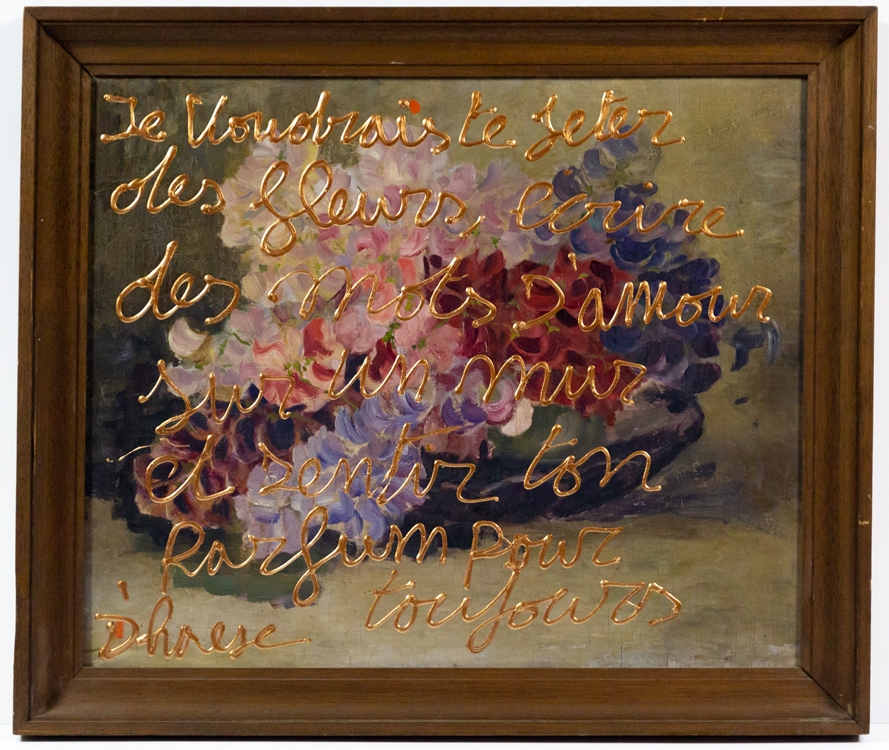 Je Voudrais te Jeter
des fleurs, écrire
des mots d'amour
sur un mur
et sentir ton
Parfum pour
toujours
D'haese